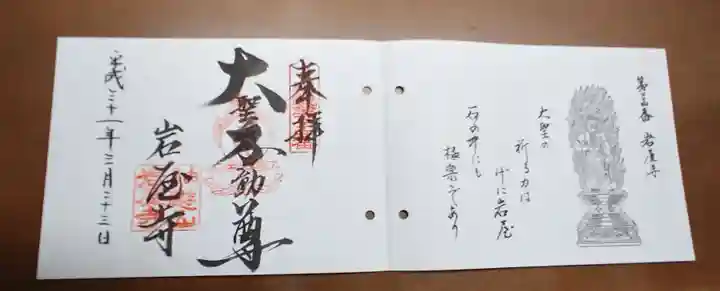 岩屋寺
大聖の
祈る力は
げに岩屋
石の中にも
極楽ぞあり
奉拝
大聖不動尊
岩屋寺
平成三十一年三月二十三日